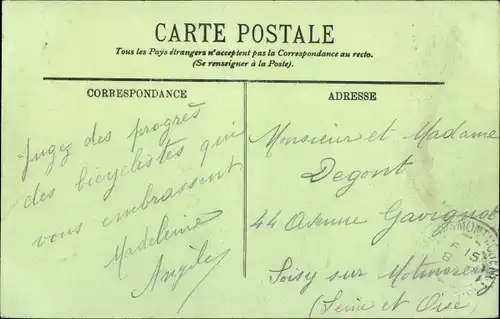 CARTE POSTALE
Tous les Pays étrangers n'acceptent pas la Correspondance au recto.
(Se renseigner à la Poste).
CORRESPONDANCE
Jugez des progrès
des bicyclistes qui
vous embrassent
Madeleine
Angèle
ADRESSE
Monsieur et Madame
Degont
44 Avenue Gavignot
Soisy sur Motmorency
(Seine et Oise)